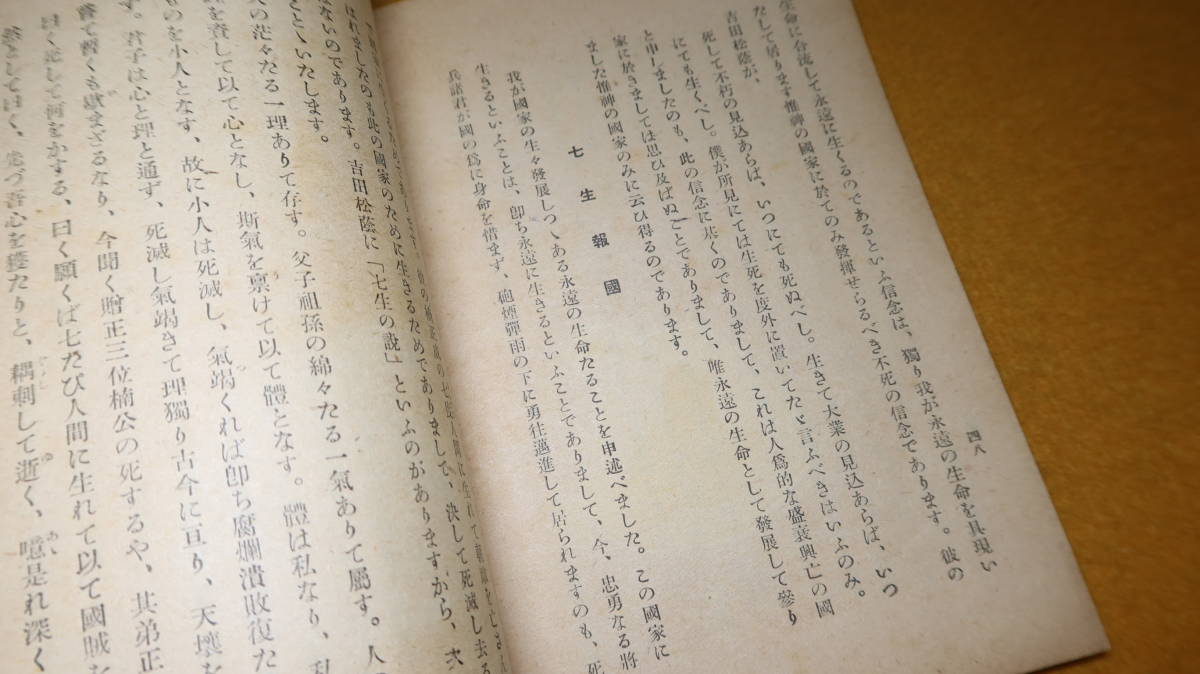 四八
生命に合流して永遠に生くるのであるといふ信念は、獨り我が永遠の生命を具現い
たして居ります惟神の國家に於てのみ發揮せらるべき不死の信念であります。彼の
吉田松蔭が、
死して不朽の見込あらば、いつにても死ぬべし。生きて大業の見込あらば、いつ
にても生くべし。僕が所見にては生死を度外に置いてたゞ言ふべきはいふのみ。
と申しましたのも、此の信念に基くのでありまして、これは人爲的な盛衰興亡の國
家に於きましては思ひ及ばぬことでありまして、唯永遠の生命として發展して參り
ました惟神の國家のみに云ひ得るのであります。
七生報國
我が國家の生々發展しつゝある永遠の生命たることを申述べました。この國家に
生きるといふことは、卽ち永遠に生きるといふことでありまして、今、忠勇なる將
兵諸君が國の爲に身命を惜まず、砲煙彈雨の下に勇往邁進して居られますのも、死
の七度人間に生れて朝敵を亡さ
はれましたのも此の國家のために生きるためでありまして、決して死滅し去る
はないのであります。吉田松蔭に「七生の說」といふのがありますから、次
といたします。
の茫々たる一理ありて存す。父子祖孫の綿々たる一氣ありて屬す。人
を資して以て心となし、斯氣を禀けて以て體となす。體は私なり、
ものを小人となす、故に小人は死滅し、氣竭くれば卽ち腐爛潰敗復た
す。君子は心と理と通ず、死滅し氣竭きて理獨り古今に亘り、天壤を
嘗て暫くも歇まざるなり、今聞く贈正三位楠公の死するや、其弟正
曰く死して何をかする、曰く願くば七たび人間に生れて以て國賊を
然として曰く、先づ吾心を獲たりと、耦刺して逝く、噫是れ深く